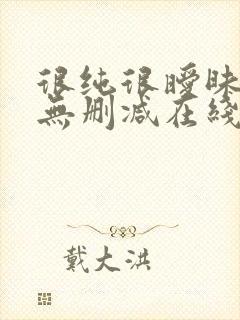 很纯很暧昧
無删减在綫
戴大洪